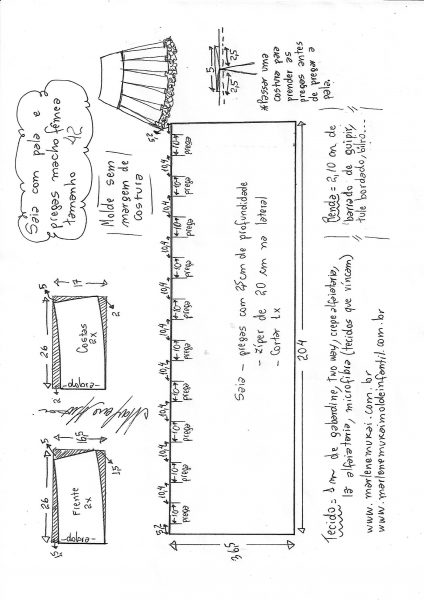 Saia com pala e
pregas macho fêmea
tamanho 42
Molde sem
margem de
costura
5
2,5
2,5
*Passar uma
costura para
prender as
pregas antes
de pregar a
pala.
5
26
17
Costas
2x
dobra
2
2
26
5
16,5
Frente
2x
dobra
1,5
1,5
5,2
10
prega
10,4
10
prega
10,4
10
prega
10,4
10
prega
10,4
10
prega
10,4
10
prega
10,4
10
prega
10,4
10
prega
10,4
10
prega
10,4
10
prega
5,2
Saia - pregas com de profundidade
- zíper de 20 cm na lateral
- Cortar 1x
204
36,5
Tecido = 1 m de gabardine, two way, crepe alfaiataria,
lã alfaiataria, microfibra (tecidos que vincam)
Renda = 2,10 cm de
barrado de guipir,
tule bordado, bilro...
www.marlenemukai.com.br
www.marlenemukaimoldeinfantil.com.br